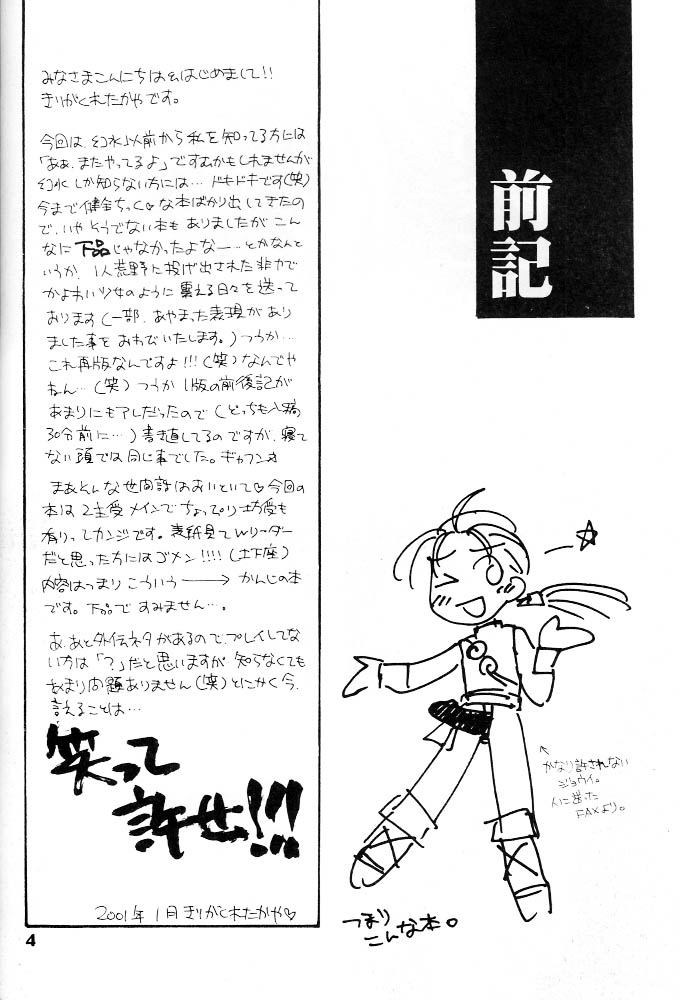 前記
みなさまこんにちは&はじめまして!!
きりがくれたかやです。
今回は、幻水以前から私を知ってる方には
「あぁ、またやってるよ」ですむかもしれませんが
幻水しか知らない方には… ドキドキです(笑)
今まで健全ちっく♡な本ばかり出してきたの
で、いやそうでない本もありましたがこん
なに下品じゃなかったよなー…とかなんと
いうか、1人荒野に投げ出された非力で
かよわい少女のように震える日々を送って
おります(一部、あやまった表現があり
ました事をおわびいたします。)つうか…
これ再版なんですよ!!!(笑)なんでや
ねん…(笑) つうか1版の前後記が
あまりにもアレだったので(どっちも入稿
30分前に…)書き直してるのですが、寝て
ない頭では同じ事でした。ギャフン♪
まあそんな世間話はおいといて♡今回の
本は2主受メインでちょっぴり坊受も
有りってカンジです。表紙見てWリーダー
だと思った方にはゴメン!!!!(土下座)
内容はつまりこういう→かんじの本
です。下品ですみません…。
あ、あと外伝ネタがあるので、プレイしてな
い方は「?」だと思いますが知らなくても
あまり問題ありません(笑)とにかく今、
言えることは…
笑って
許せ!!!
2001年 1月 きりがくれたかや♡
4
☆
←かなり許されない
ジョウイ。
人に送った
FAXより。
つまり
こんな本。